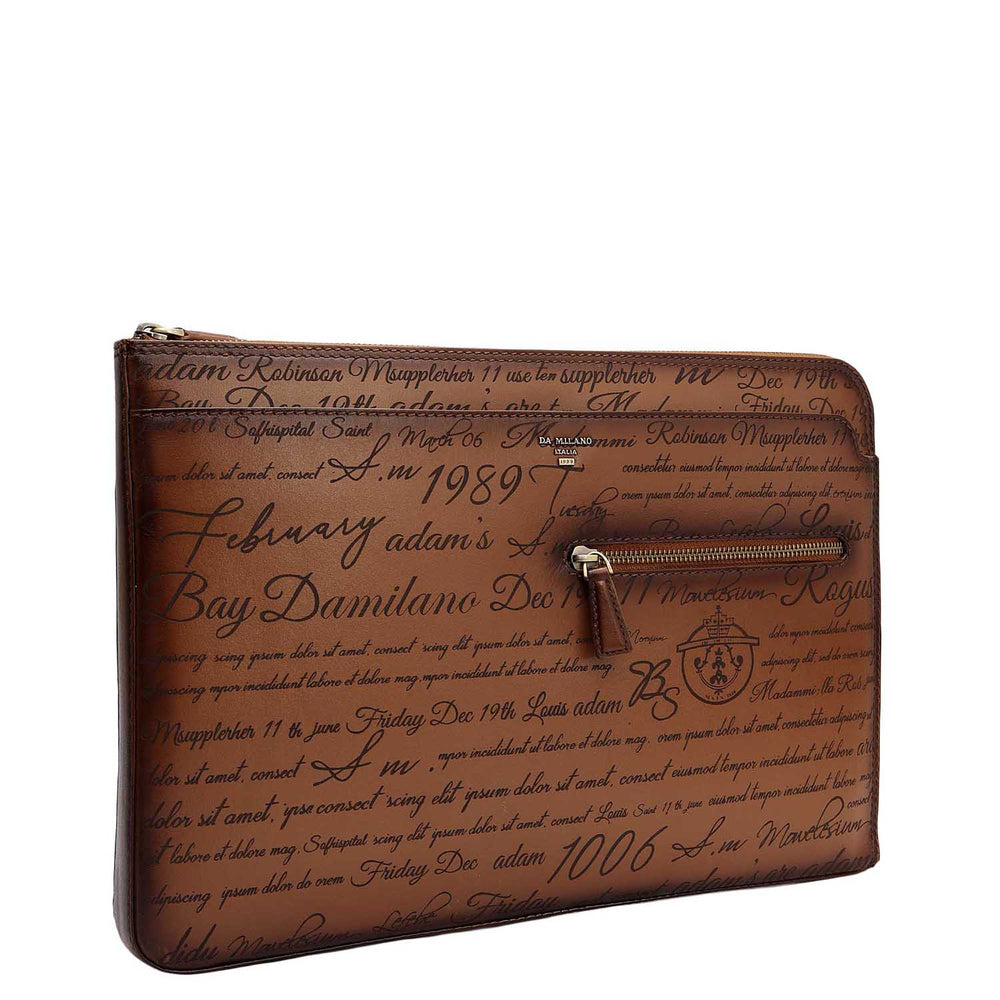 adam Robinson Msupplerher 11 use tem supplerher m Dec 19th
Bay Dec 19th adam's are t Madammi Friday Dec
Sofhispital Saint March 06 Madammi Robinson Msupplerher
DA MILANO
ITALIA
1989
dolor sit amet, consect S.m 1989 Tuesday consectetur eiusmod tempor incididunt ut labore et dolore
orem ipsum dolor sit amet, consectetur adipiscing elit
February adam's S.m Louis
Bay Damilano Dec 11 Mavelesium Rogus
adipiscing scing ipsum dolor sit amet, consect scing elit ipsum dolor sit amet, Morgum dolor mpor incididunt
mpor incididunt labore et dolore mag, mpor incididunt labore et dolore mag. BS adipiscing elit, sed do orem
Msupplerher 11 th june Friday Dec 19th Louis adam Madammi
dolor sit amet, consect S.m. mpor incididunt ut labore et dolore mag. orem ipsum dolor sit amet, consectetur adipiscing
dolor sit amet, ipsa consect scing elit ipsum dolor sit amet, consect eiusmod tempor incididunt ut labore
ut labore et dolore mag, Sofhispital scing elit ipsum dolor sit amet, consect Louis Saint 11 th june eiusmod tempor incididunt labore consect
adipiscing ipsum dolor do orem Friday Dec adam 1006 S.m Mavelesium
didu Mavelesium Friday adam's are